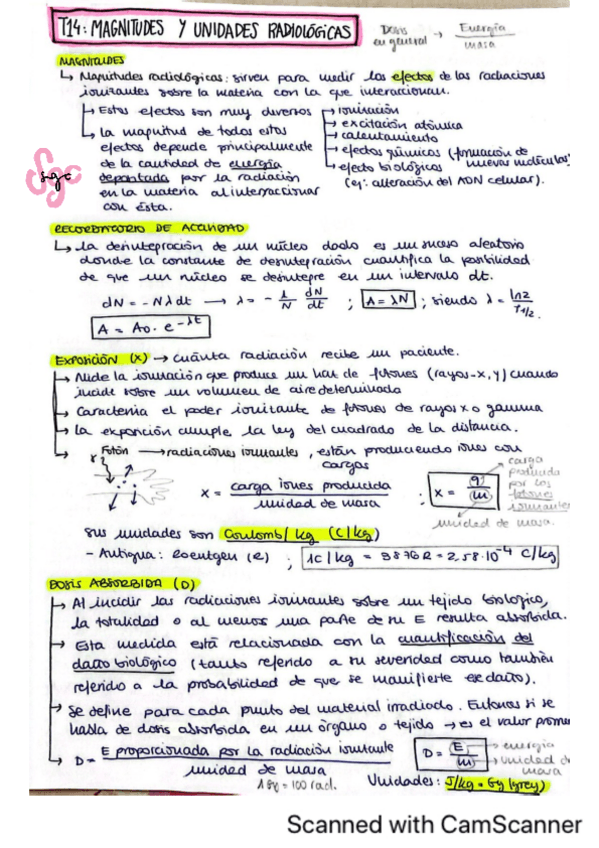 T14: MAGNITUDES Y UNIDADES RADIOLÓGICAS
Dosis en general → Energía / masa
MAGNITUDES
↳ Magnitudes radiológicas: sirven para medir los efectos de las radiaciones
ionizantes sobre la materia con la que interaccionan.
↳ Estos efectos son muy diversos
→ ionización
→ excitación atómica
→ calentamiento
→ efectos químicos (formación de nuevas moléculas)
↳ efecto biológicos
(ej: alteración del ADN celular).
↳ la magnitud de todos estos
efectos depende principalmente
de la cantidad de energía
depositada por la radiación
en la materia al interaccionar
con ésta.
Sgc
RECORDATORIO DE ACTIVIDAD
↳ la desintegración de un núcleo dado es un suceso aleatorio
donde la constante de desintegración cuantifica la posibilidad
de que un núcleo se desintegre en un intervalo dt.
dN = -Nλdt → λ = - 1/N dN/dt ; A = λN ; siendo λ = ln2 / T1/2.
A = A0 · e^-λt
EXPOSICIÓN (X) → cuánta radiación recibe un paciente.
→ Mide la ionización que produce un haz de fotones (rayos-x, γ) cuando
incide sobre un volumen de aire determinado
→ Caracteriza el poder ionizante de fotones de rayos x o gamma
→ la exposición cumple la ley del cuadrado de la distancia.
↳ Fotón → radiaciones ionizantes, están produciendo iones con
cargas
X = carga iones producida / unidad de masa ; X = q / m
carga
producida
por los
fotones
ionizantes
unidad de masa.
sus unidades son Coulomb/kg (C/kg)
- Antigua: Roentgen (R) ; 1C/kg = 3876R = 2,58·10^-4 C/kg
DOSIS ABSORBIDA (D)
→ Al incidir las radiaciones ionizantes sobre un tejido biologico,
la totalidad o al menos una parte de su E resulta absorbida.
→ Esta medida está relacionada con la cuantificación del
daño biológico (tanto referido a su severidad como también
referido a la probabilidad de que se manifieste ese daño).
→ Se define para cada punto del material irradiado. Entonces si se
habla de dosis absorbida en un órgano o tejido → es el valor prome
↳ D = E proporcionada por la radiación ionizante / unidad de masa
D = E / m
→ energía
→ unidad de masa
1 Gy = 100 rad.
Unidades: J/kg = Gy (grey)
Scanned with CamScanner